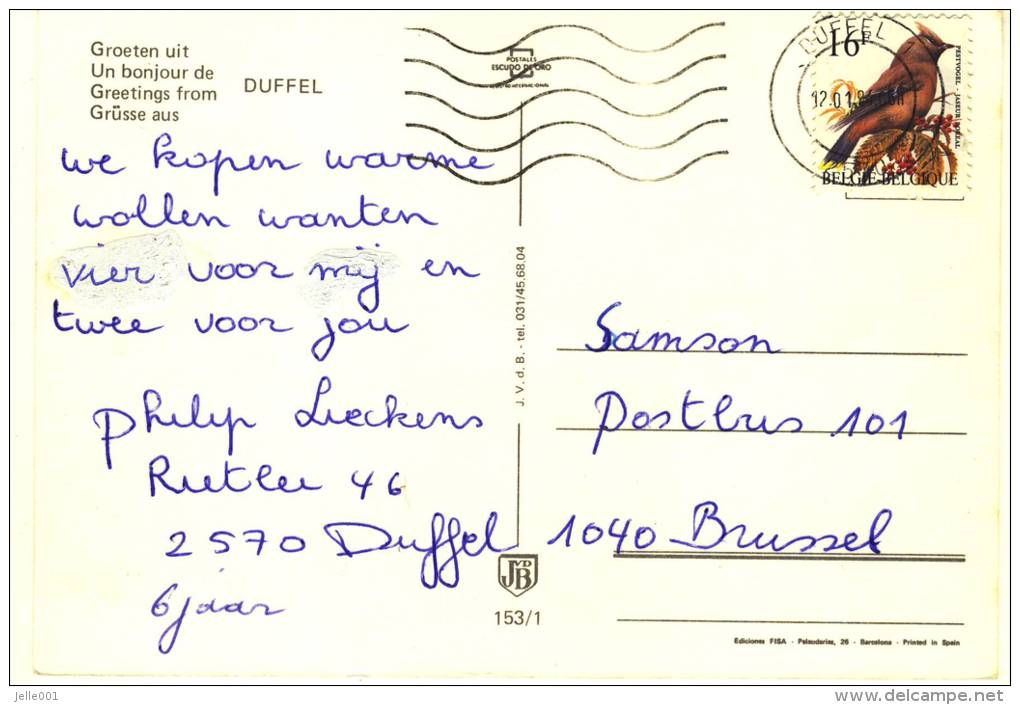 Groeten uit
Un bonjour de
Greetings from
Grüsse aus
DUFFEL
POSTALES
ESCUDO DE ORO
DUFFEL
16F
PESTVOGEL - JASEUR BOREAL
BELGIE-BELGIQUE
we kopen warme
wollen wanten
vier voor mij en
twee voor jou
Philip Lieckens
Rietlei 46
2570 Duffel
6 jaar
J. V. d. B. - tel. 031/45.68.04
Samson
Postbus 101
1040 Brussel
JVDB
153/1
Ediciones FISA - Palaudarias, 26 - Barcelona - Printed in Spain
jelle001
www.delcampe.net